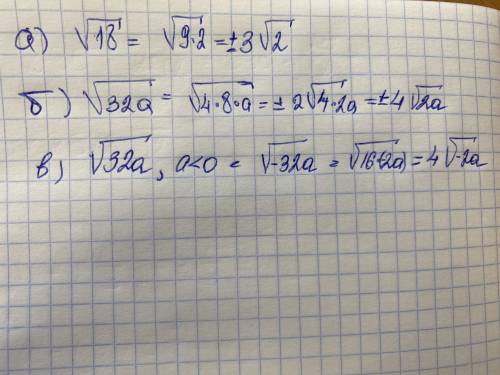 а) √18 = √9·2 = ±3√2
б) √32a = √4·8·a = ± 2√4·2a = ±4√2a
в) √32a, a<0 = √-32a = √16·(-2a) = 4√-2a